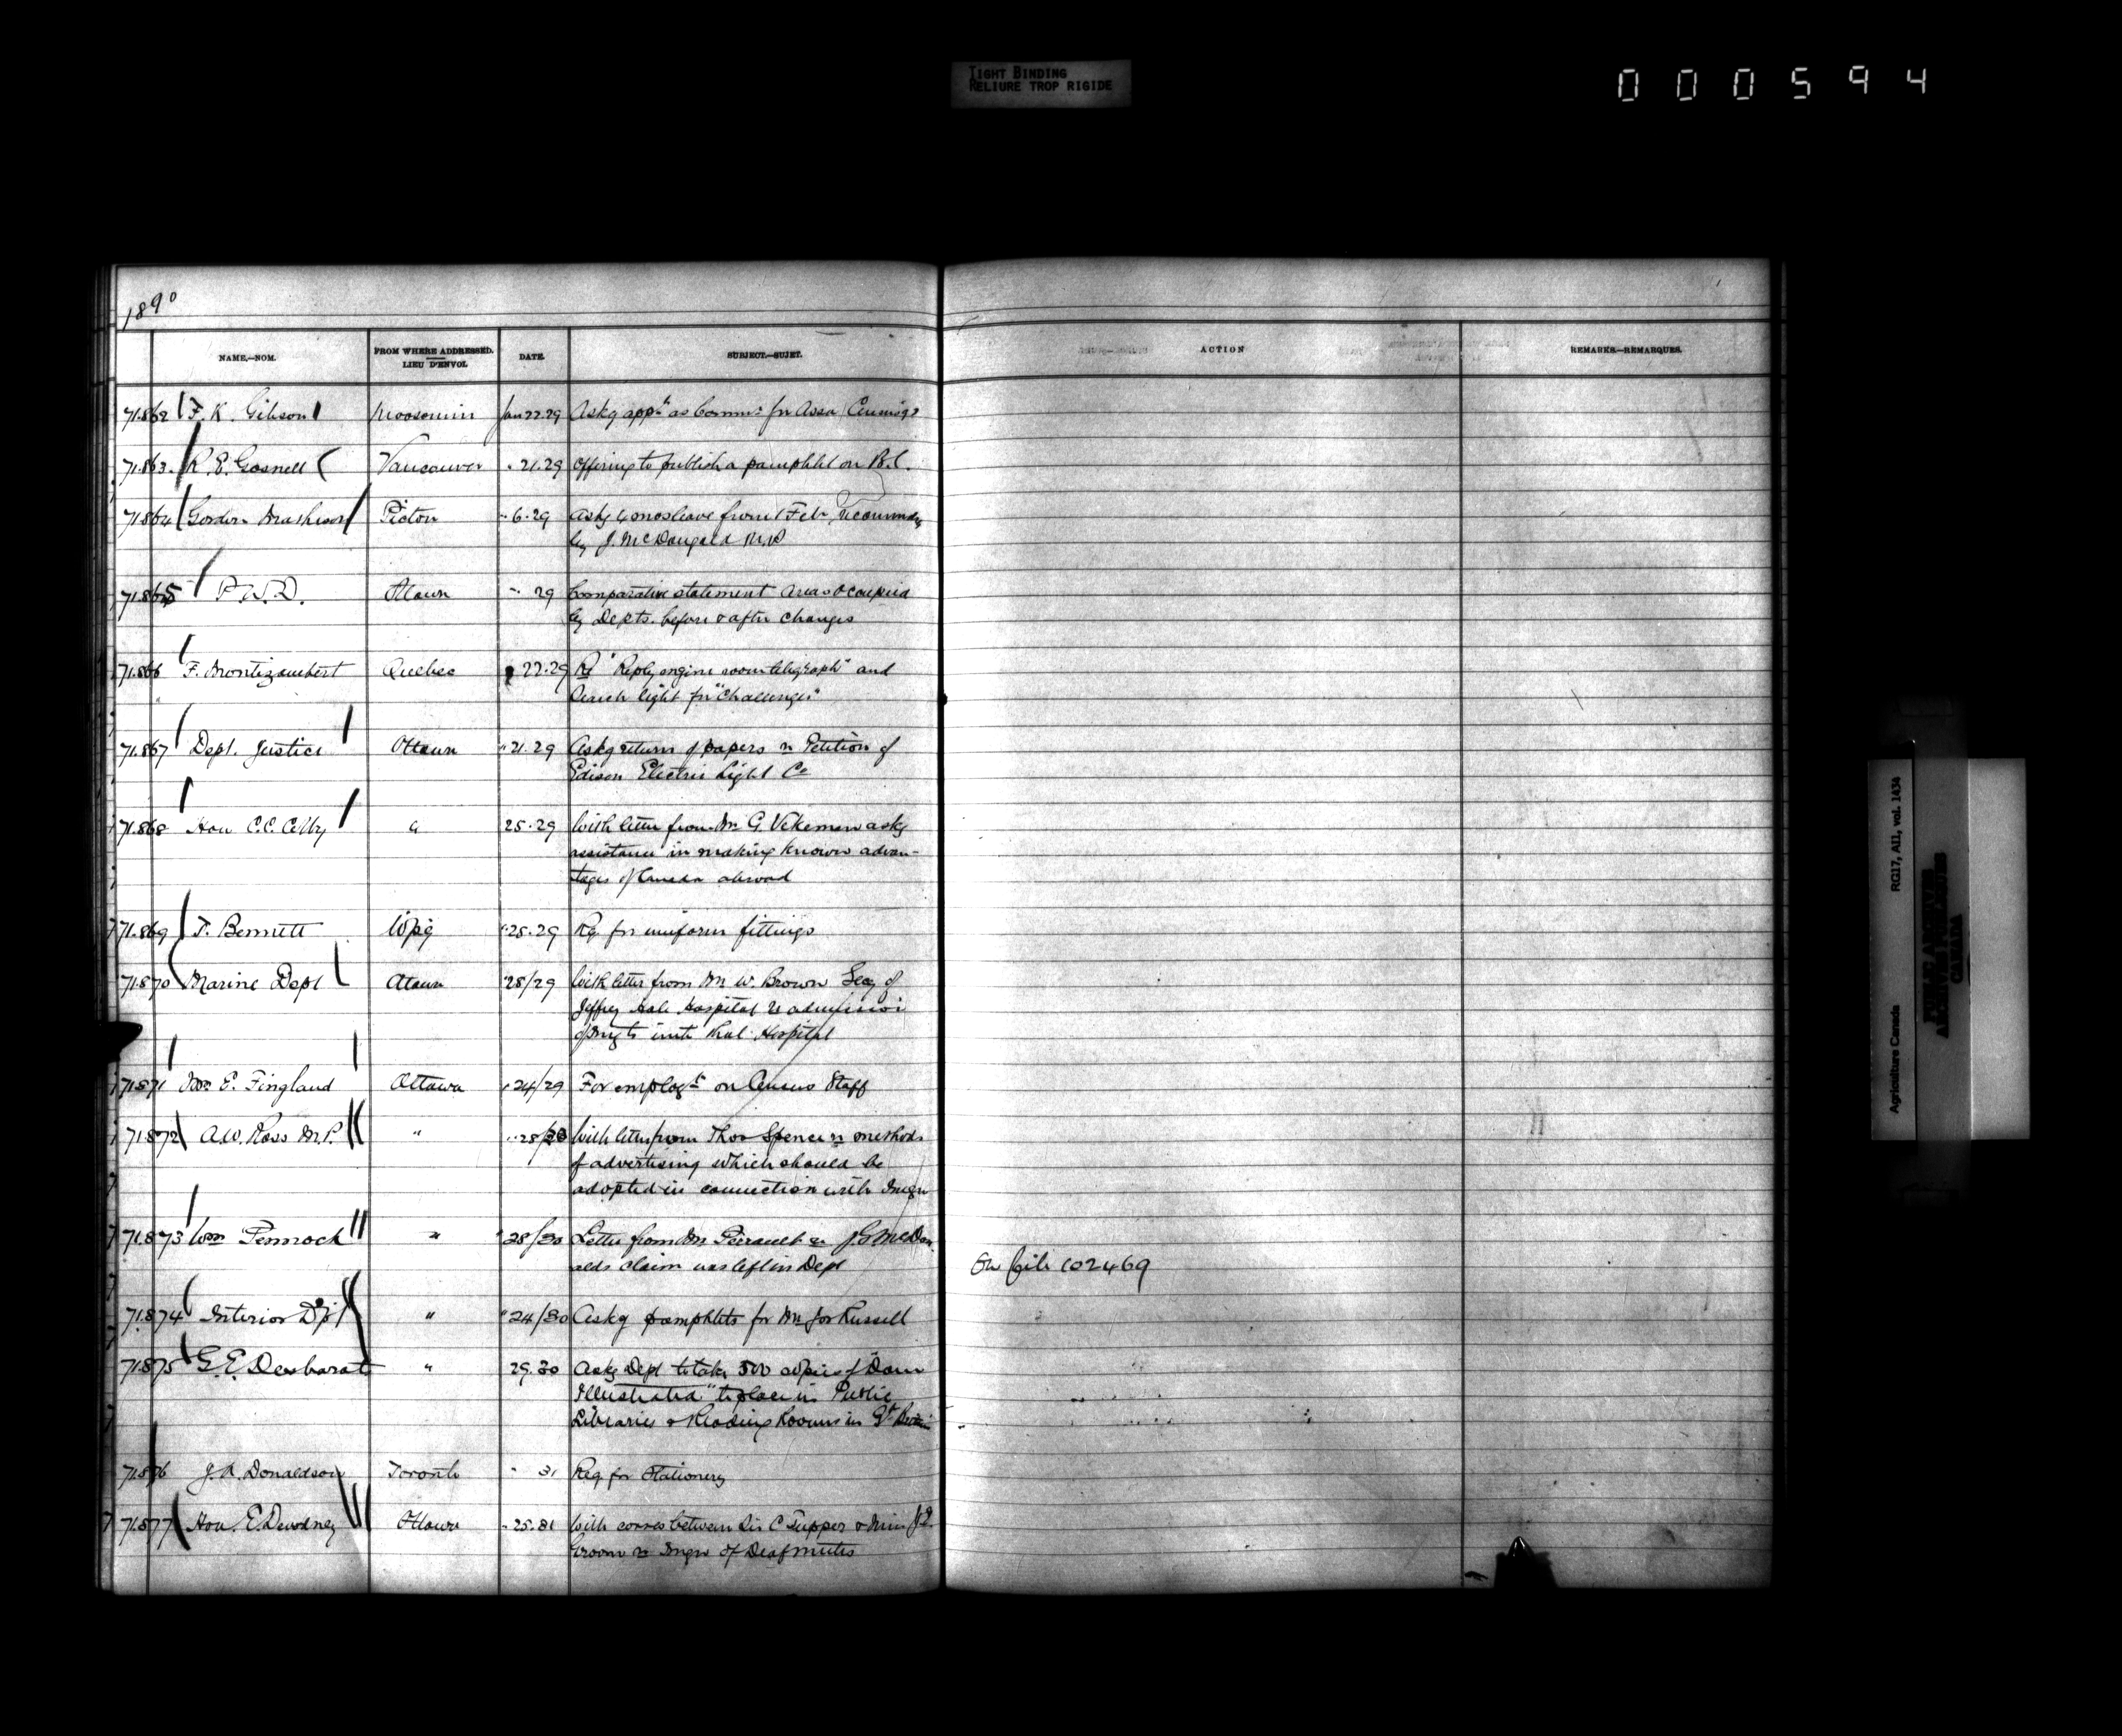 TIGHT BINDING
RELIURE TROP RIGIDE
000594
1890
NAME.—NOM.
FROM WHERE ADDRESSED.
LIEU D'ENVOI.
DATE.
SUBJECT.—SUJET.
ACTION
REMARKS—REMARQUES.
71.862 F. K. Gibson Moosomin Jan 22.29 Askg appt as Commr for Assa Census
71.863 R. E. Gosnell Vancouver " 21.29 Offering to publish a pamphlet on B.C.
71.864 Gordon Mathison Picton " 6.29 Askg 4 mos leave from 1 Feb, recommended
by J. McDougald M.P.
71.865 P. W. D. Ottawa " 29 Comparative statement areas occupied
by Depts. before & after changes
71.866 F. Montizambert Quebec 22.29 Re "Reply engine room telegraph" and
Search light for "Challenger"
71.867 Dept. Justice Ottawa " 21.29 Askg return of papers re Petition of
Edison Electric Light Co
71.868 Hon C.C. Colby " 25.29 With letter from Mr G. Vekeman askg
assistance in making known advan-
tages of Canada abroad
71.869 T. Bennett Wpg " 25.29 Req. for uniform fittings
71.870 Marine Dept Ottawa " 28/29 With letter from Mr W. Brown Secy of
Jeffrey Hale Hospital re admission
of Imgts into that Hospital
71.871 E. Fingland Ottawa " 24/29 For employt on Census Staff
71.872 A.W. Ross M.P. " " 28/29 With letter from Thos Spence re methods
of advertising which should be
adopted in connection with Imgn
71.873 Wm Pennock " " 28/30 Letter from Mr Perrault re J.G. McDon
alds claim was left in Dept
On file 102469
71.874 Interior Dpt " " 24/30 Askg pamphlets for Mr Jos Russell
71.875 G.E. Desbarats " 29.30 Asks Dept to take 500 copies of "Dom
Illustrated" to place in Public
Libraries & Reading Rooms in Gt Britain
71.876 J.A. Donaldson Toronto " 31 Req for Stationery
71.877 Hon. E. Dewdney Ottawa " 25.31 With corres between Sir C Tupper & Miss
Groom re Imgn of Deaf mutes
Agriculture Canada RG17, AI1, vol. 1434
PUBLIC ARCHIVES
ARCHIVES PUBLIQUES
CANADA